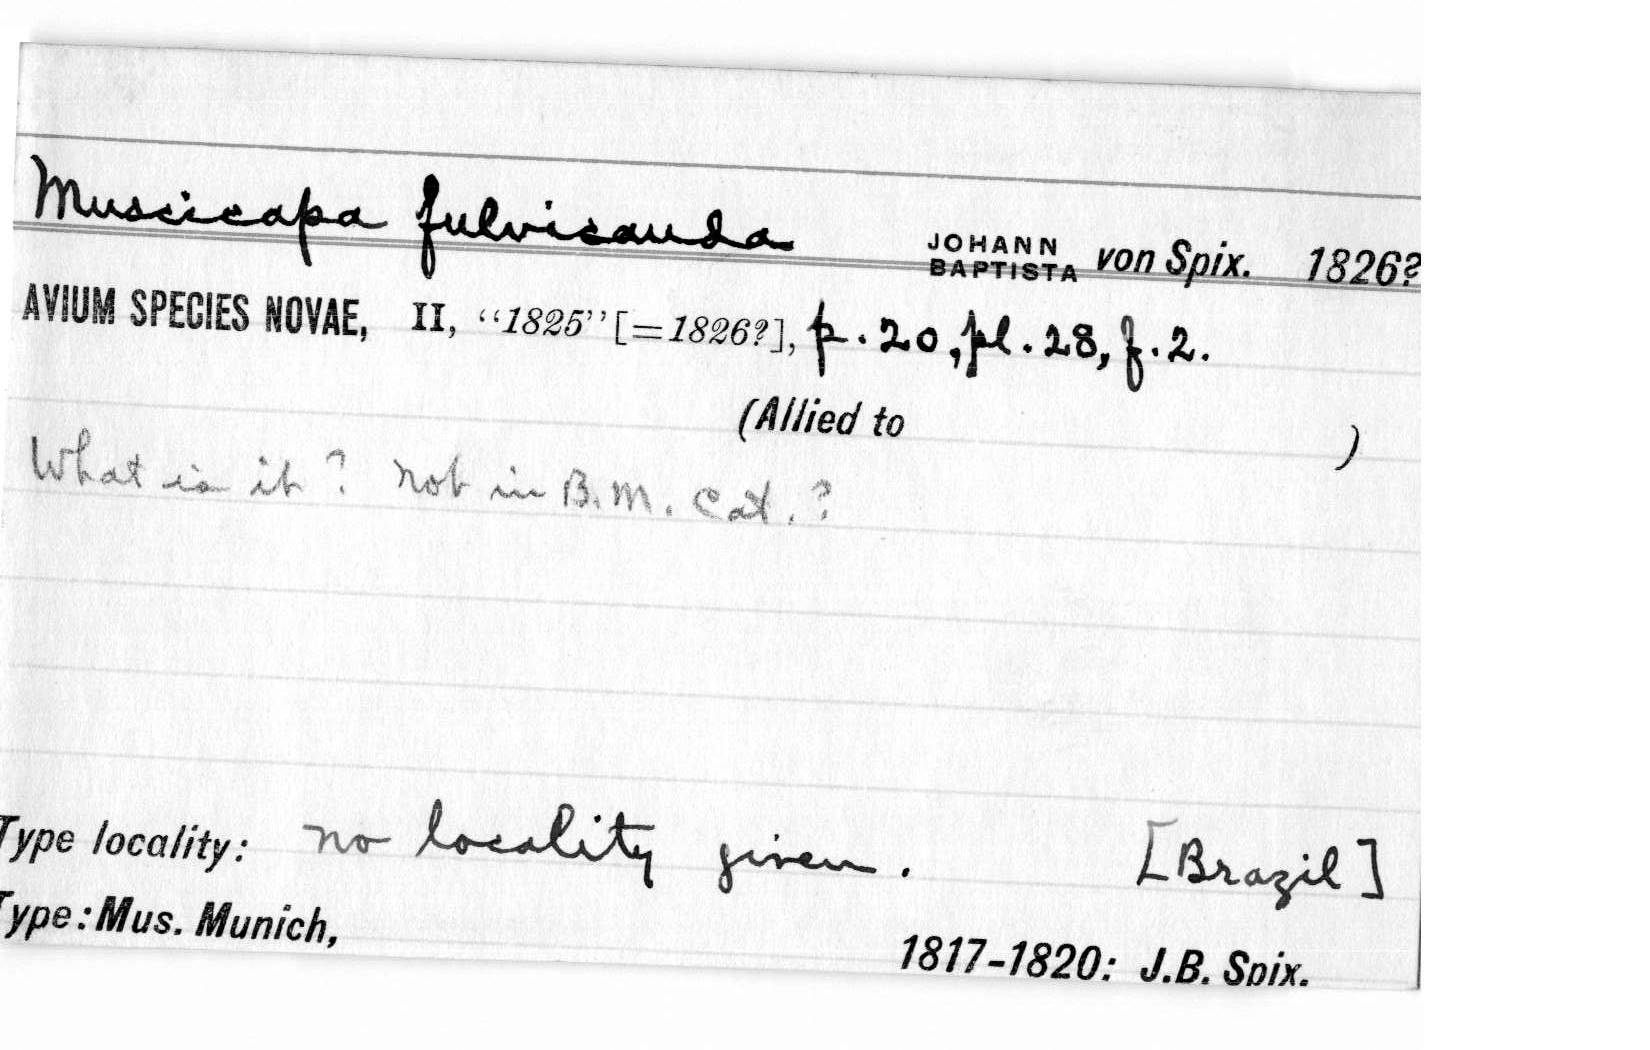 Muscicapa fulvicauda JOHANN BAPTISTA von Spix. 1826?
AVIUM SPECIES NOVAE, II, “1825” [=1826?], p. 20, pl. 28, f. 2.
(Allied to )
What is it? Not in B.M. Cat.?
Type locality: no locality given. [Brazil]
Type: Mus. Munich,
1817-1820: J.B. Spix.